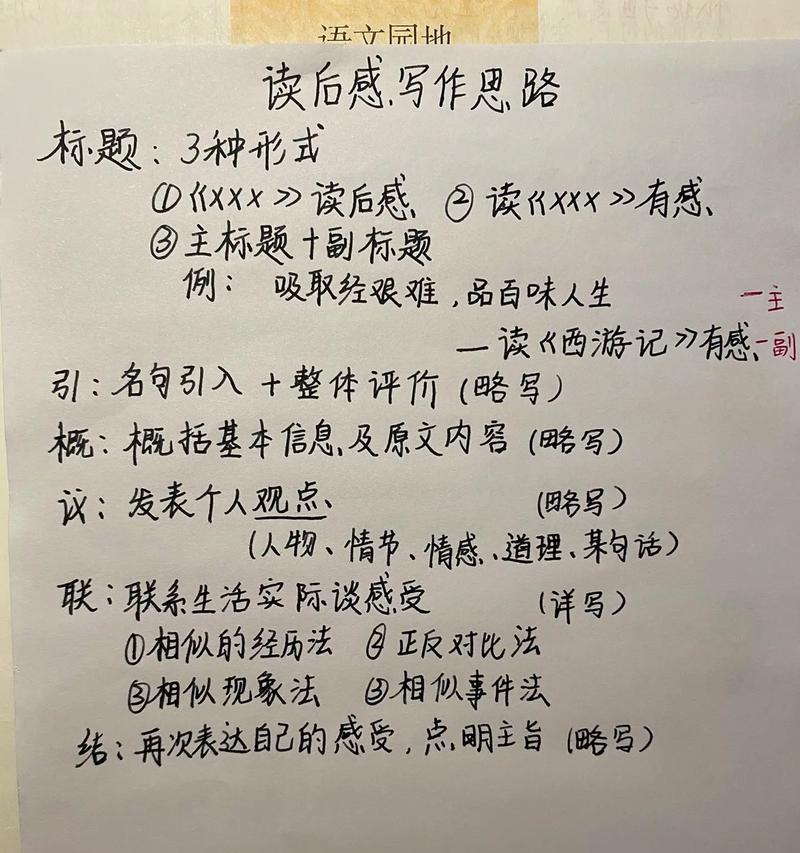 语文园地
读后感写作思路
标题：3种形式
①《XXX》读后感 ②读《XXX》有感
③主标题+副标题
例：吸取经艰难，品百味人生 —主
—读《西游记》有感 —副
引：名句引入+整体评价（略写）
概：概括基本信息及原文内容（略写）
议：发表个人观点、（略写）
（人物、情节、情感、道理、某句话）
联：联系生活实际谈感受（详写）
①相似的经历法 ②正反对比法
③相似现象法 ③相似事件法
结：再次表达自己的感受，点明主旨（略写）